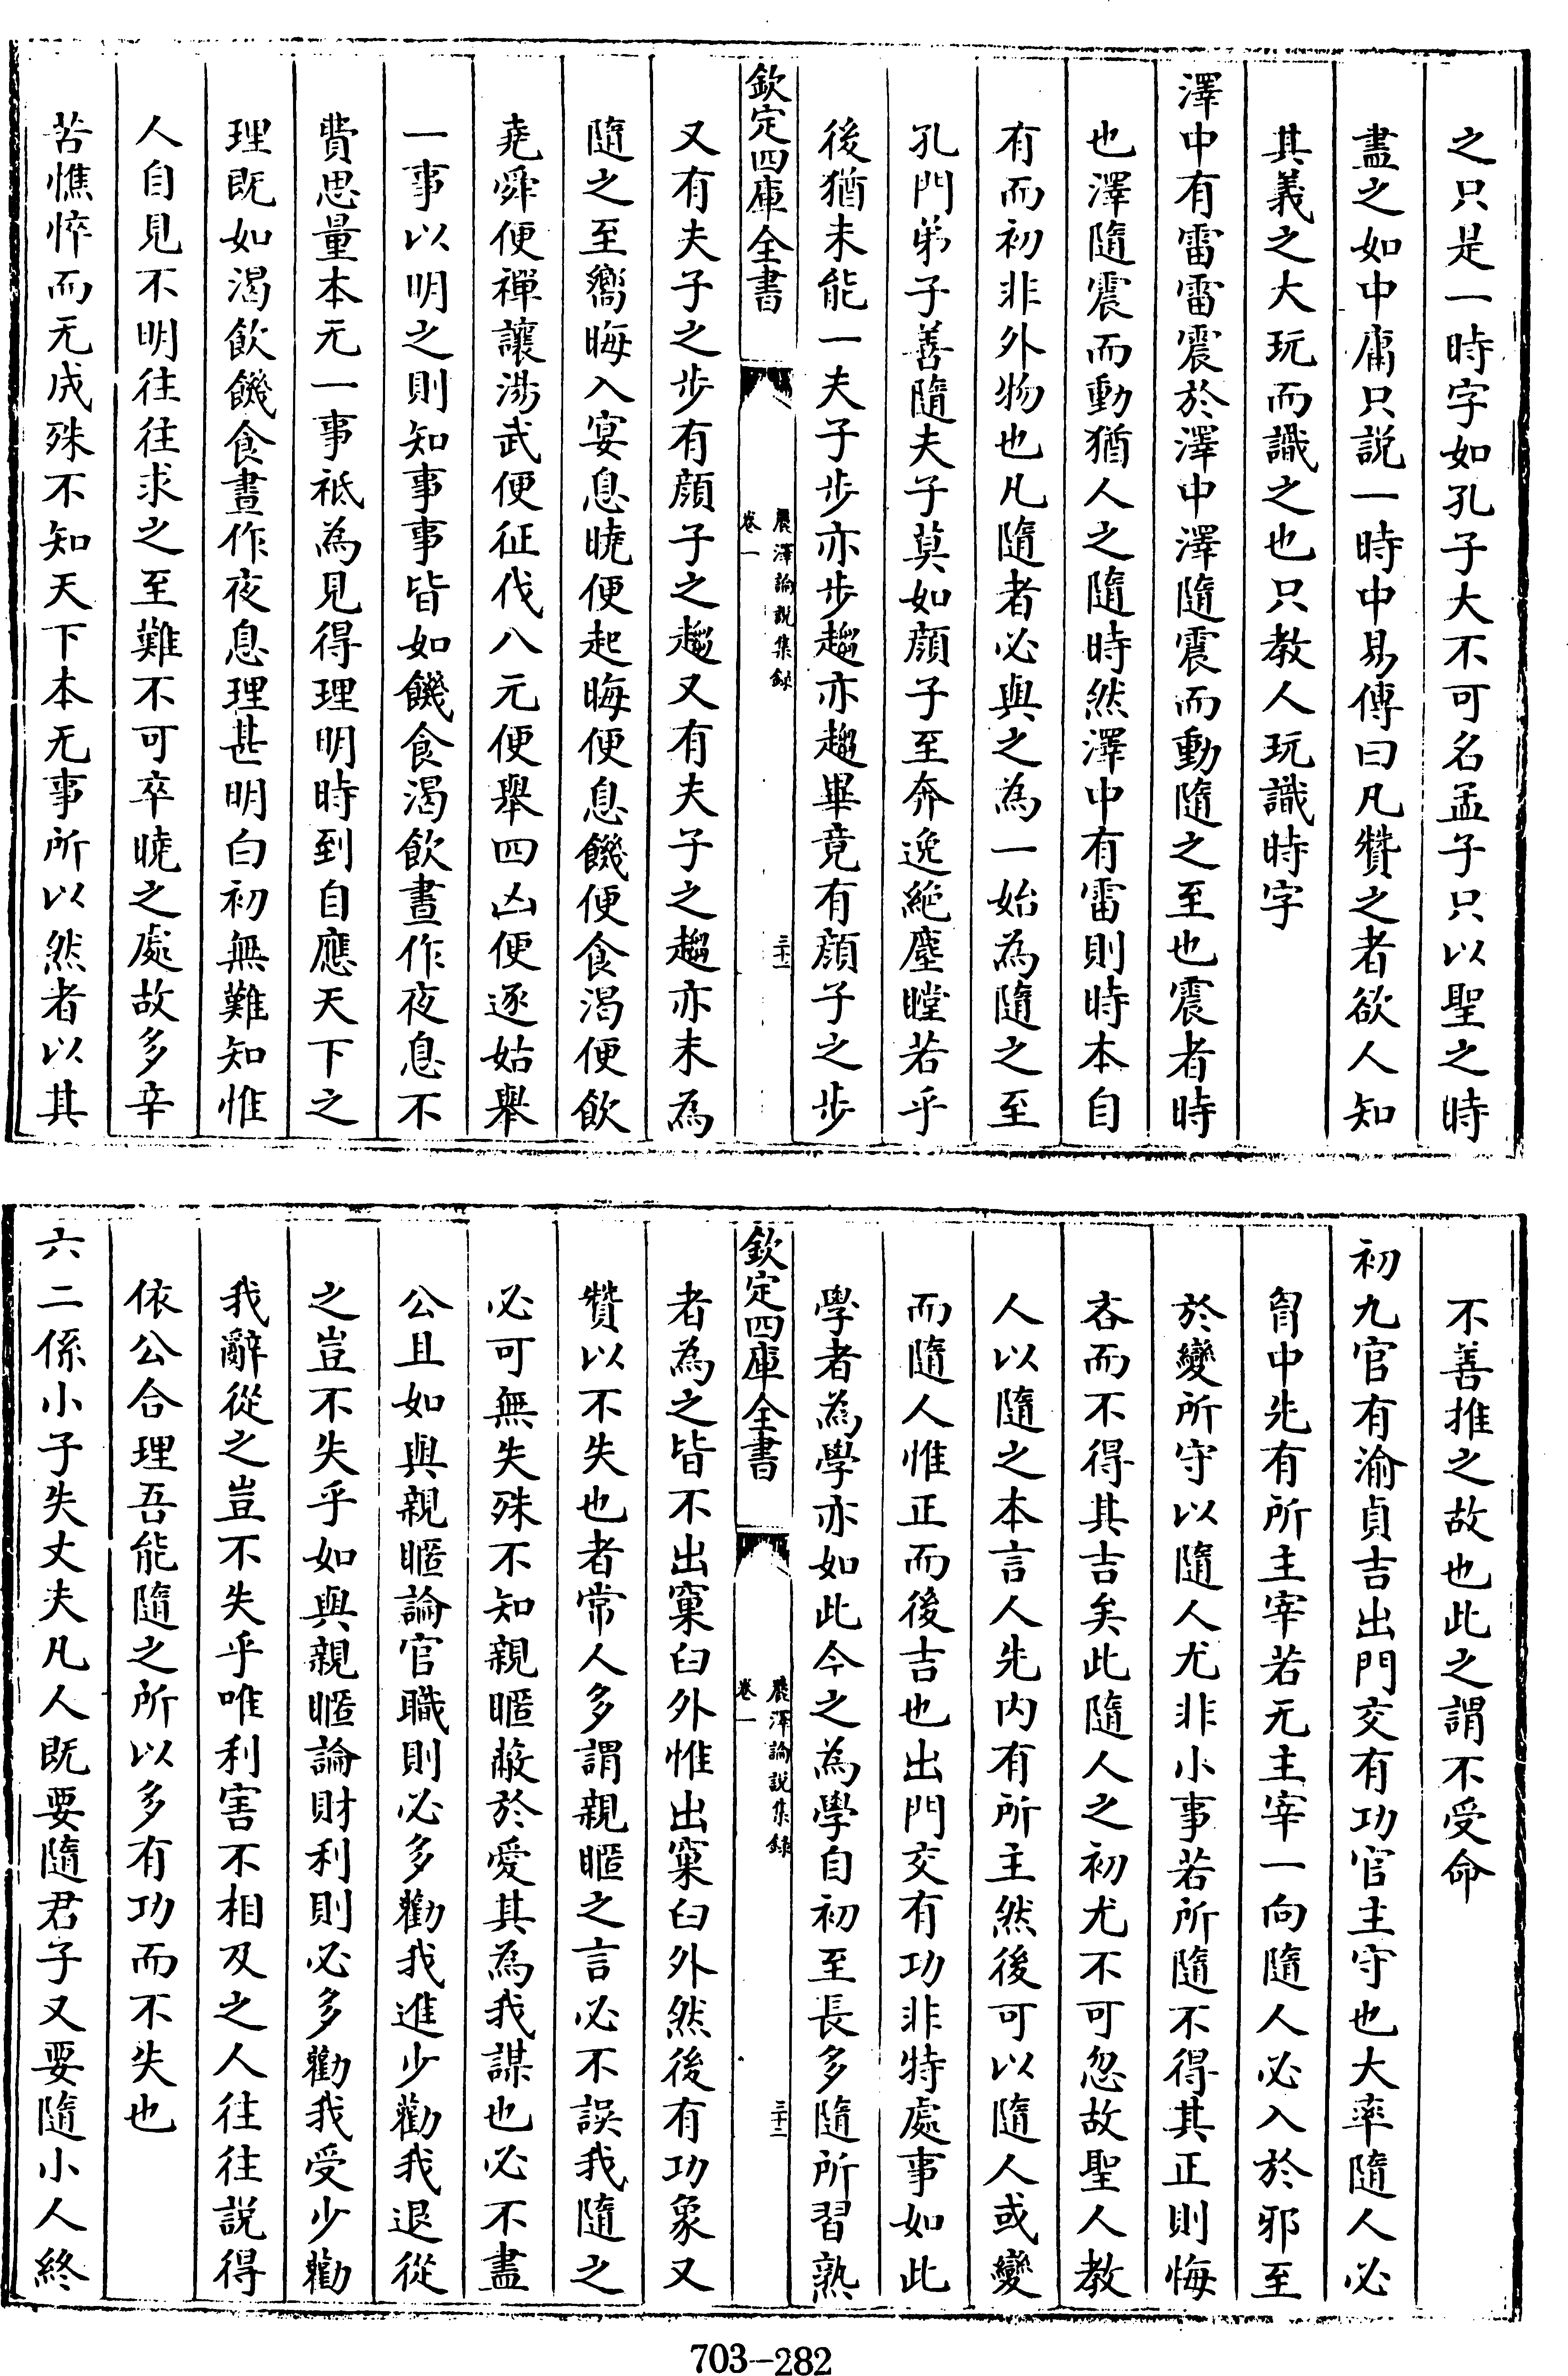 之只是一時字如孔子大不可名孟子只以聖之時
盡之如中庸只説一時中易傳曰凡贊之者欲人知
其義之大玩而識之也只教人玩識時字
澤中有雷雷震於澤中澤隨震而動隨之至也震者時
也澤隨震而動猶人之隨時然澤中有雷則時本自
有而初非外物也凡隨者必與之為一始為隨之至
孔門弟子善隨夫子莫如顔子至奔逸絶塵瞠若乎
後猶未能一夫子步亦步趨亦趨畢竟有顔子之步
欽定四庫全書
麗澤論説集録
卷一
三十一
又有夫子之步有顔子之趨又有夫子之趨亦未為
隨之至嚮晦入宴息曉便起晦便息饑便食渇便飲
堯舜便禪讓湯武便征伐八元便舉四凶便逐姑舉
一事以明之則知事事皆如饑食渇飲晝作夜息不
費思量本元一事祗為見得理明時到自應天下之
理既如渇飲饑食晝作夜息理甚明白初無難知惟
人自見不明往往求之至難不可卒曉之處故多辛
苦憔悴而无成殊不知天下本无事所以然者以其
不善推之故也此之謂不受命
初九官有渝貞吉出門交有功官主守也大率隨人必
胷中先有所主宰若无主宰一向隨人必入於邪至
於變所守以隨人尤非小事若所隨不得其正則悔
吝而不得其吉矣此隨人之初尤不可忽故聖人教
人以隨之本言人先内有所主然後可以隨人或變
而隨人惟正而後吉也出門交有功非特處事如此
學者為學亦如此今之為學自初至長多隨所習熟
欽定四庫全書
麗澤論説集録
卷一
三十二
者為之皆不出窠臼外惟出窠臼外然後有功象又
贊以不失也者常人多謂親暱之言必不誤我隨之
必可無失殊不知親暱蔽於愛其為我謀也必不盡
公且如與親暱論官職則必多勸我進少勸我退從
之豈不失乎如與親暱論財利則必多勸我受少勸
我辭從之豈不失乎唯利害不相及之人往往説得
依公合理吾能隨之所以多有功而不失也
六二係小子失丈夫凡人既要隨君子又要隨小人終
703—282